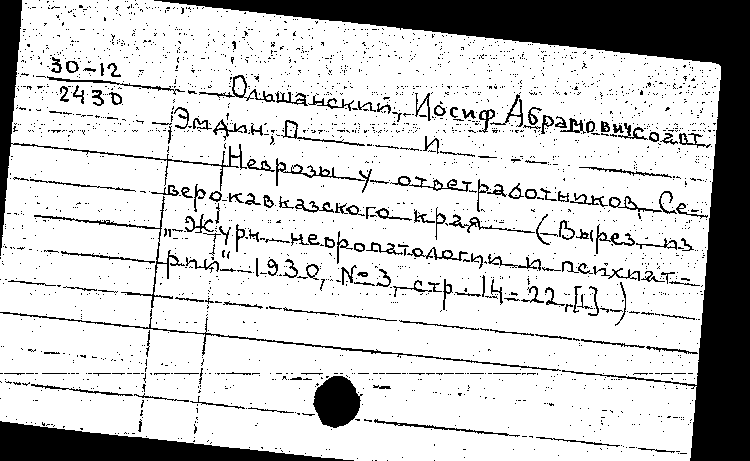 30-12
2430
Ольшанский, Иосиф Абрамович соавт.
Эмдин, П. И
Неврозы у ответработников Се-
верокавказского края. (Вырез. из
„Журн. невропатологии и психиат-
рии“ 1930, №3, стр. 14-22, [1].)